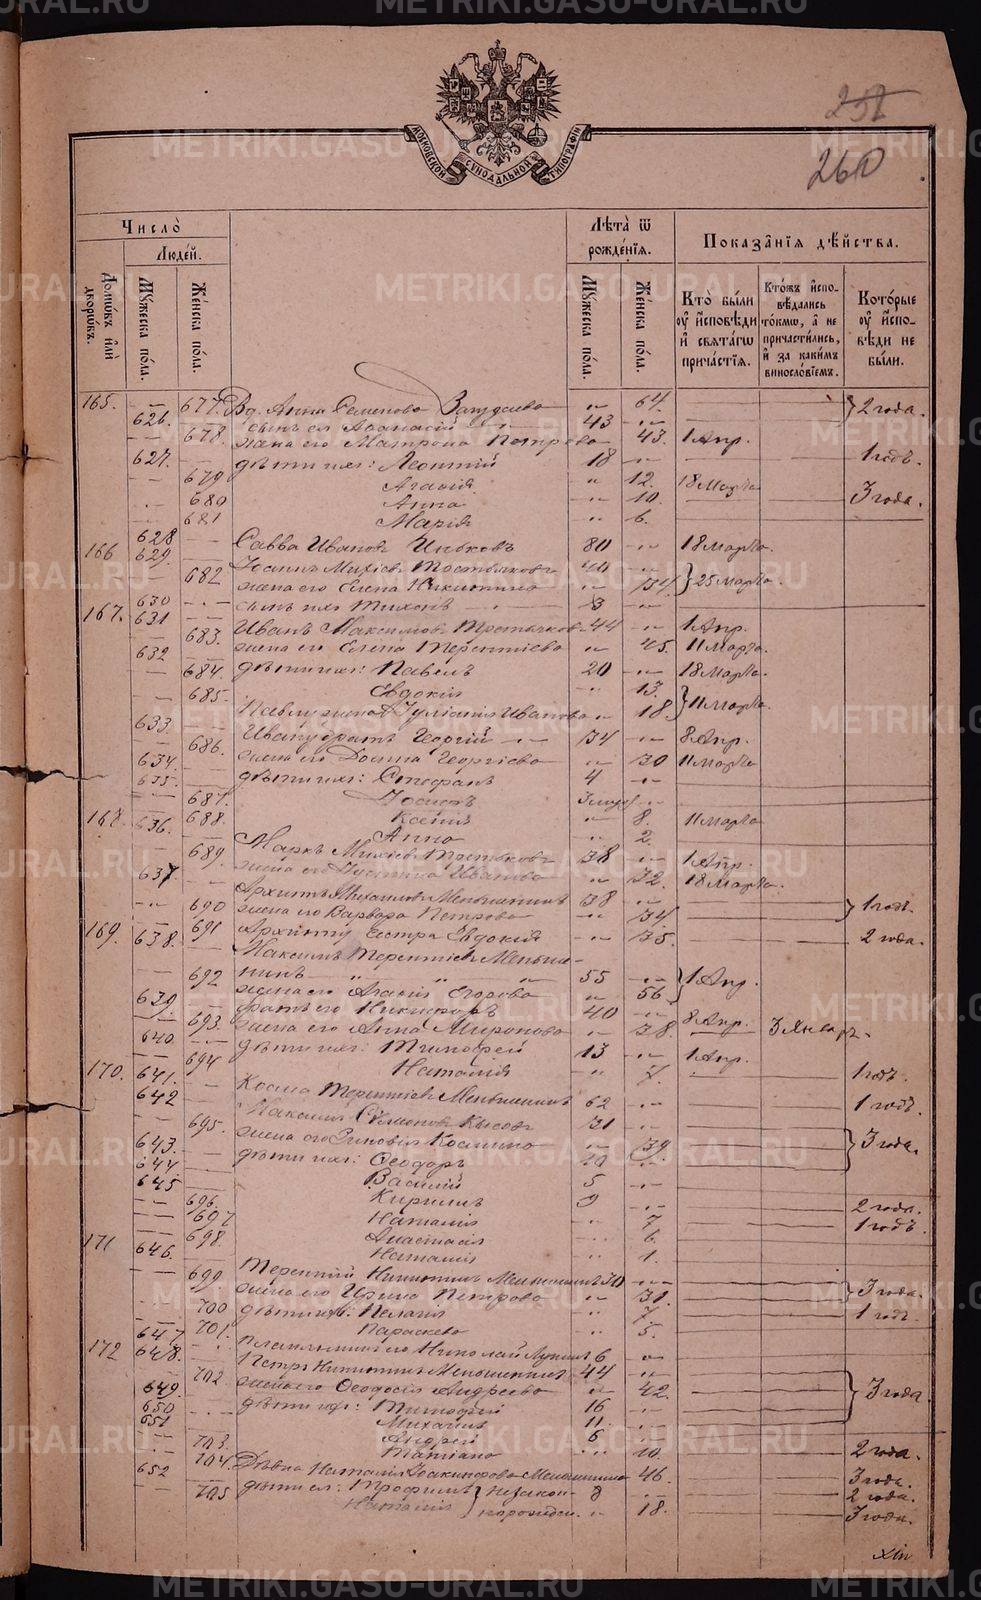 METRIKI.GASO-URAL.RU
МОСКОВСКОЙ СѴНОДАЛЬНОЙ ТИПОГРАФІИ
251
260
Число̀
Людей.
Домѡвъ или дворѡвъ.
Мꙋжеска пола.
Женска пола.
Лѣта ѿ рожденїѧ.
Мꙋжеска пола.
Женска пола.
Показанїѧ дѣйства.
Кто были оу исповѣди и свѧтагѡ причастїѧ.
Ктожъ исповѣдались токмѡ, а не причастились, и за какимъ винословїемъ.
Которые оу исповѣди не были.
165. — 677. Вд. Анна Семенова " 64. 2 года.
626. — сынъ ея Афанасій 43
— 678. жена его Матрона Петрова 43. 1 Апр.
627. — дѣти ихъ: Леонтій 18 — 1 годъ.
— 679 Агафія " 12. 18 Марта
— 680 Анна " 10. 3 года.
— 681 Марія " 6.
166 628 — Савва Ивановъ 80 18 Марта.
629. — Іоаннъ 40
— 682 жена его Елена Никитина 34. 25 Марта.
630 — сынъ ихъ Тихонъ 3
167. 631 — Иванъ Максимовъ 44 1 Апр.
— 683. жена его Елена Терентіева " 45. 11 Марта.
632 — дѣти ихъ: Павелъ 20 18 Марта.
— 684. Евдокія " 13.
— 685. Павлу жена Іуліанія Иванова " 18 11 Марта.
633. — Ивану братъ Георгій 34 8 Апр.
— 686. жена его Домна Георгіева " 30 11 Марта
634. — дѣти ихъ: Стефанъ 4
635.
— 687. Ксенія " 8. 11 Марта
— 688. Анна " 2.
168. 636. — Маркъ 38 1 Апр.
— 689. жена его Іустина Иванова " 32. 18 Марта.
637 — Архипъ Михаиловъ Меньшенинъ 38 1 годъ.
— 690 жена его Варвара Петрова " 34
— 691 Архипу сестра Евдокія " 35. 2 года.
169. 638. — Максимъ Терентіевъ Меньше-
нинъ 55
— 692 жена его Агафія Егорова " 56 1 Апр.
639. — братъ его Никифоръ 40 8 Апр.
— 693. жена его Анна Миронова " 38. 3 Январь.
640. — дѣти ихъ: Тимофей 13 1 Апр.
— 694 Наталія " 7. 1 годъ.
170. 641. — Косма Терентіевъ Меньшенинъ 62 1 годъ.
642 — Максимъ 31
— 695. жена его Зиновія Космина " 39. 3 года.
643. — дѣти ихъ: Ѳеодоръ
644 — Василій 5
645 — Кириллъ 9
— 696. Наталія " 7 2 года.
— 697 Анастасія " 6. 1 годъ
— 698. Наталія " 1.
171 646. — Терентій Никитинъ Меньшенинъ 30
— 699 жена его Ирина Петрова " 31. 3 года.
— 700 дѣти ихъ: Пелагія " 7 1 годъ
— 701. Параскева " 5.
647 — племянникъ его Николай 6
172 648. — Петръ Никитинъ Меньшенинъ 44
— 702. жена его Ѳеодосія Андреева " 42. 3 года
649. — дѣти ихъ: Тимофей 16
650 — Михаилъ 11.
651 — Андрей 6
— 703. Татіана " 10. 2 года.
— 704. Дѣвка Наталія Меньшенина 46. 3 года.
652 — дѣти ея: Трофимъ незакон- 8 2 года.
— 705 Наталія норожден. " 18. 3 года.